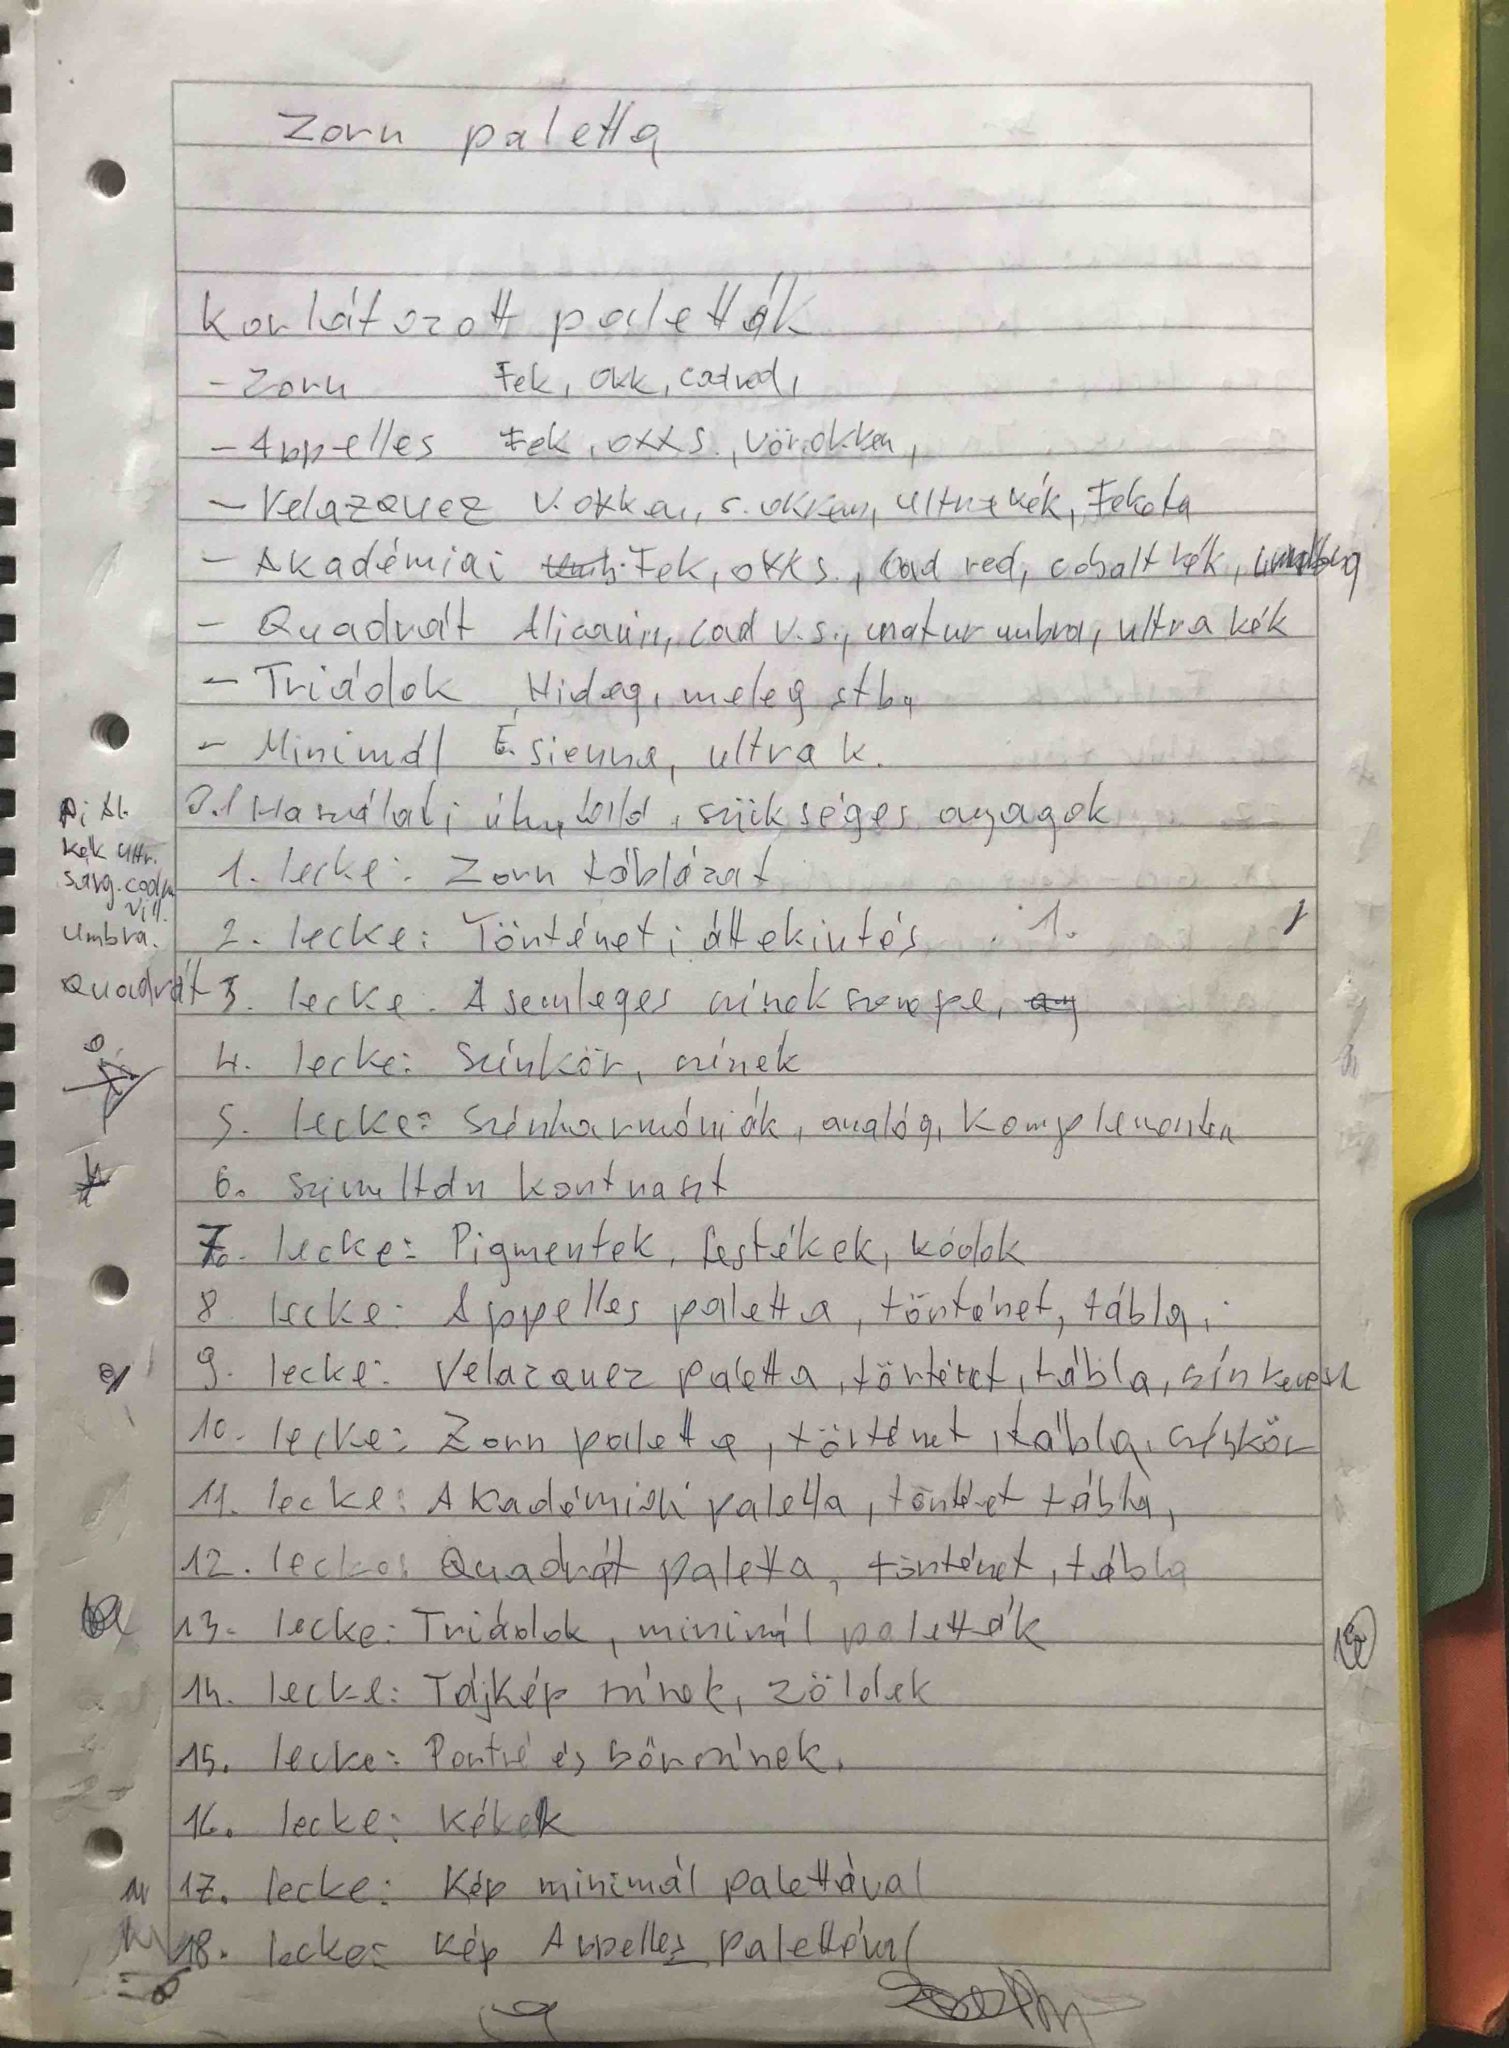 Zorn paletta
Korlátozott paletták
- Zorn Fek, okk, cadred,
- Appelles Fek, okk s., vör.okker,
- Velazquez V. okker, s. okker, ultra kék, Fekete
- Akadémiai Fek, okk s., cad red, cobalt kék, umbra
- Quadrát Alicarin, cad v.s., natur umbra, ultra kék
- Triádok Hideg, meleg stb.
- Minimál É. sienna, ultra k.
0.1 Használati útm, szükséges anyagok
1. lecke: Zorn táblázat
2. lecke: Történeti áttekintés 1.
3. lecke: A semleges színek szerepe,
4. lecke: Színkör, színek
5. lecke: Színharmóniák, analóg, komplementer
6. szimultán kontraszt
7. lecke: Pigmentek, festékek, kódok
8. lecke: Appelles paletta, történet, tábla,
9. lecke: Velazquez paletta, történet, tábla,
10. lecke: Zorn paletta, történet, tábla, színkör
11. lecke: Akadémiai paletta, történet tábla,
12. lecke: Quadrát paletta, történet, tábla
13. lecke: Triádok, minimál paletták
14. lecke: Tájkép színek, zöldek
15. lecke: Portré és bőrszínek.
16. lecke: kékek
17. lecke: Kép minimál palettával
18. lecke: Kép Appelles palettával
kék ultr.
Sárg. cadm
vil.
Umbra.
Quadrát